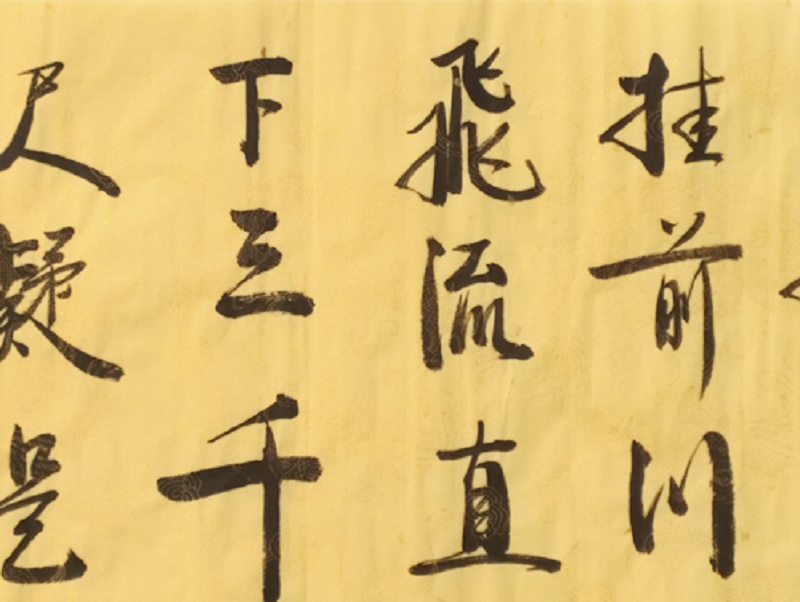 挂前川
飛流直
下三千
尺疑是